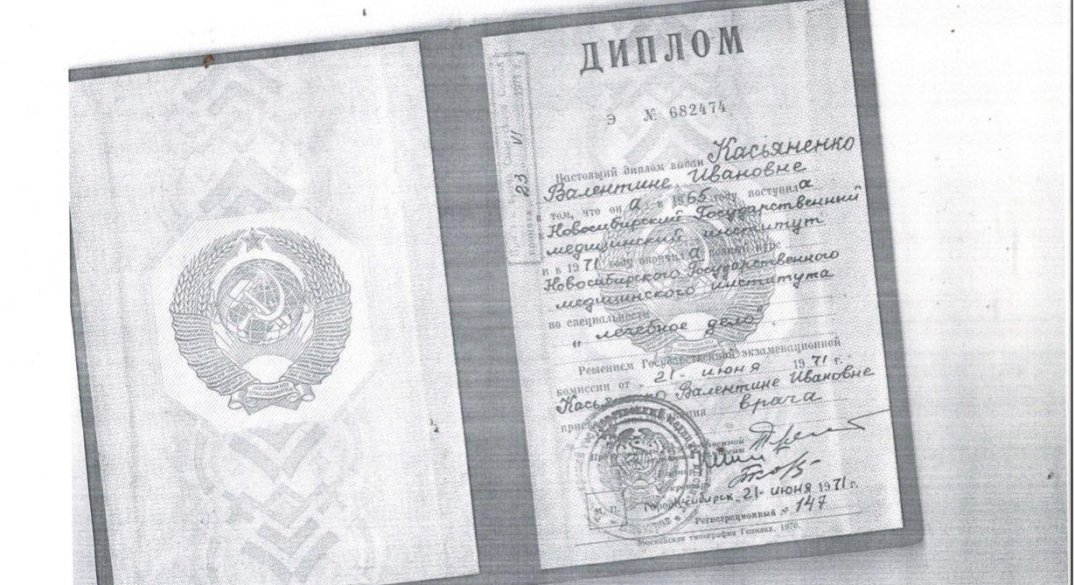 ДИПЛОМ
Э № 682474
Настоящий диплом выдан Касьяненко
Валентине Ивановне
в том, что он а в 1965 году поступил а
в Новосибирский Государственный
медицинский институт
и в 1971 году окончил а полный курс
Новосибирского Государственного
медицинского института
по специальности
„лечебное дело"
Решением Государственной экзаменационной
комиссии от „21" июня 1971 г.
Касьяненко Валентине Ивановне
врача
М. П.
Город Новосибирск „21" июня 1971 г.
Регистрационный № 147
Московская типография Гознака. 1970.
23 VI